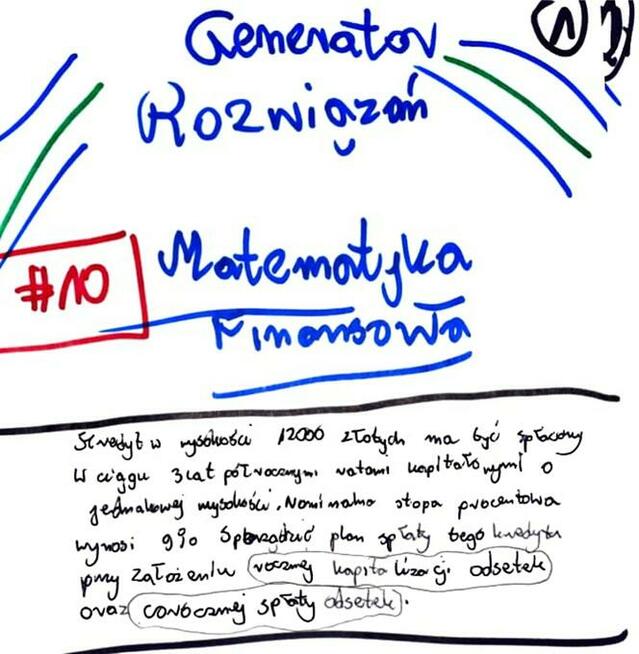 Generator
Rozwiązań
#10
Matematyka
Finansowa
Kredyt w wysokości 12000 złotych ma być spłacony
w ciągu 3 lat półrocznymi ratami kapitałowymi o
jednakowej wysokości. Nominalna stopa procentowa
wynosi 9% Sporządzić plan spłaty tego kredytu
przy założeniu rocznej kapitalizacji odsetek
oraz corocznej spłaty odsetek.